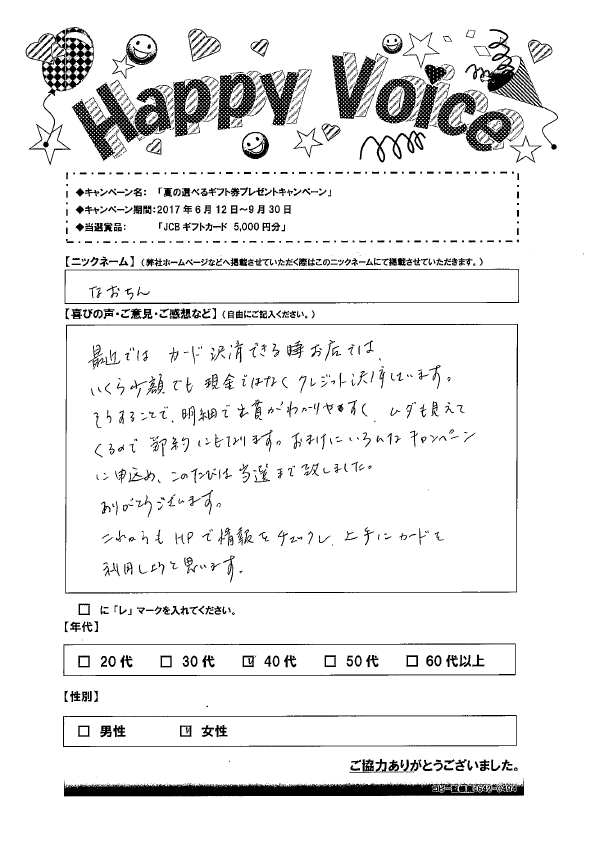 Happy Voice
◆キャンペーン名: 「夏の選べるギフト券プレゼントキャンペーン」
◆キャンペーン期間:2017年6月12日～9月30日
◆当選賞品: 「JCBギフトカード 5,000円分」
【ニックネーム】(弊社ホームページなどへ掲載させていただく際はこのニックネームにて掲載させていただきます。)
なおちん
【喜びの声・ご意見・ご感想など】(自由にご記入ください。)
最近では カード決済できる時お店では、
いくら少額でも現金ではなくクレジット決済しています。
そうすることで、明細で出費がわかりやすく、ムダも見えて
くるので節約にもなります。おまけにいろんなキャンペーン
に申込め、このたびは当選まで致しました。
ありがとうございます。
これからもHPで情報をチェックし、上手にカードを
利用しようと思います。
□に「レ」マークを入れてください。
【年代】
□ 20代 □ 30代 ☑ 40代 □ 50代 □ 60代以上
【性別】
□ 男性 ☑ 女性
ご協力ありがとうございました。